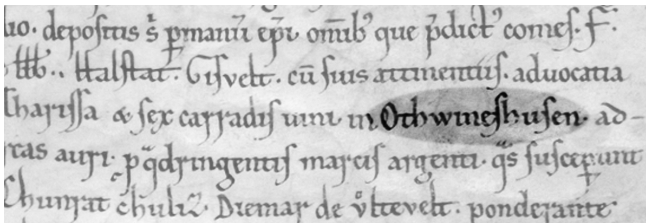 uo. depositis s̄ p manū ep̄i om̄ib⁹ que p̄dict⁹ comes. F.
Halstat. Gisvelt. cū suis attinentiis. advocatia
harissa & sex carradis vini in Othwineshusen. ad-
cas auri. p q̄dringentis marcis argenti. q̄s susceperunt
Chunrat Diemar de vͦltevelt. ponderante